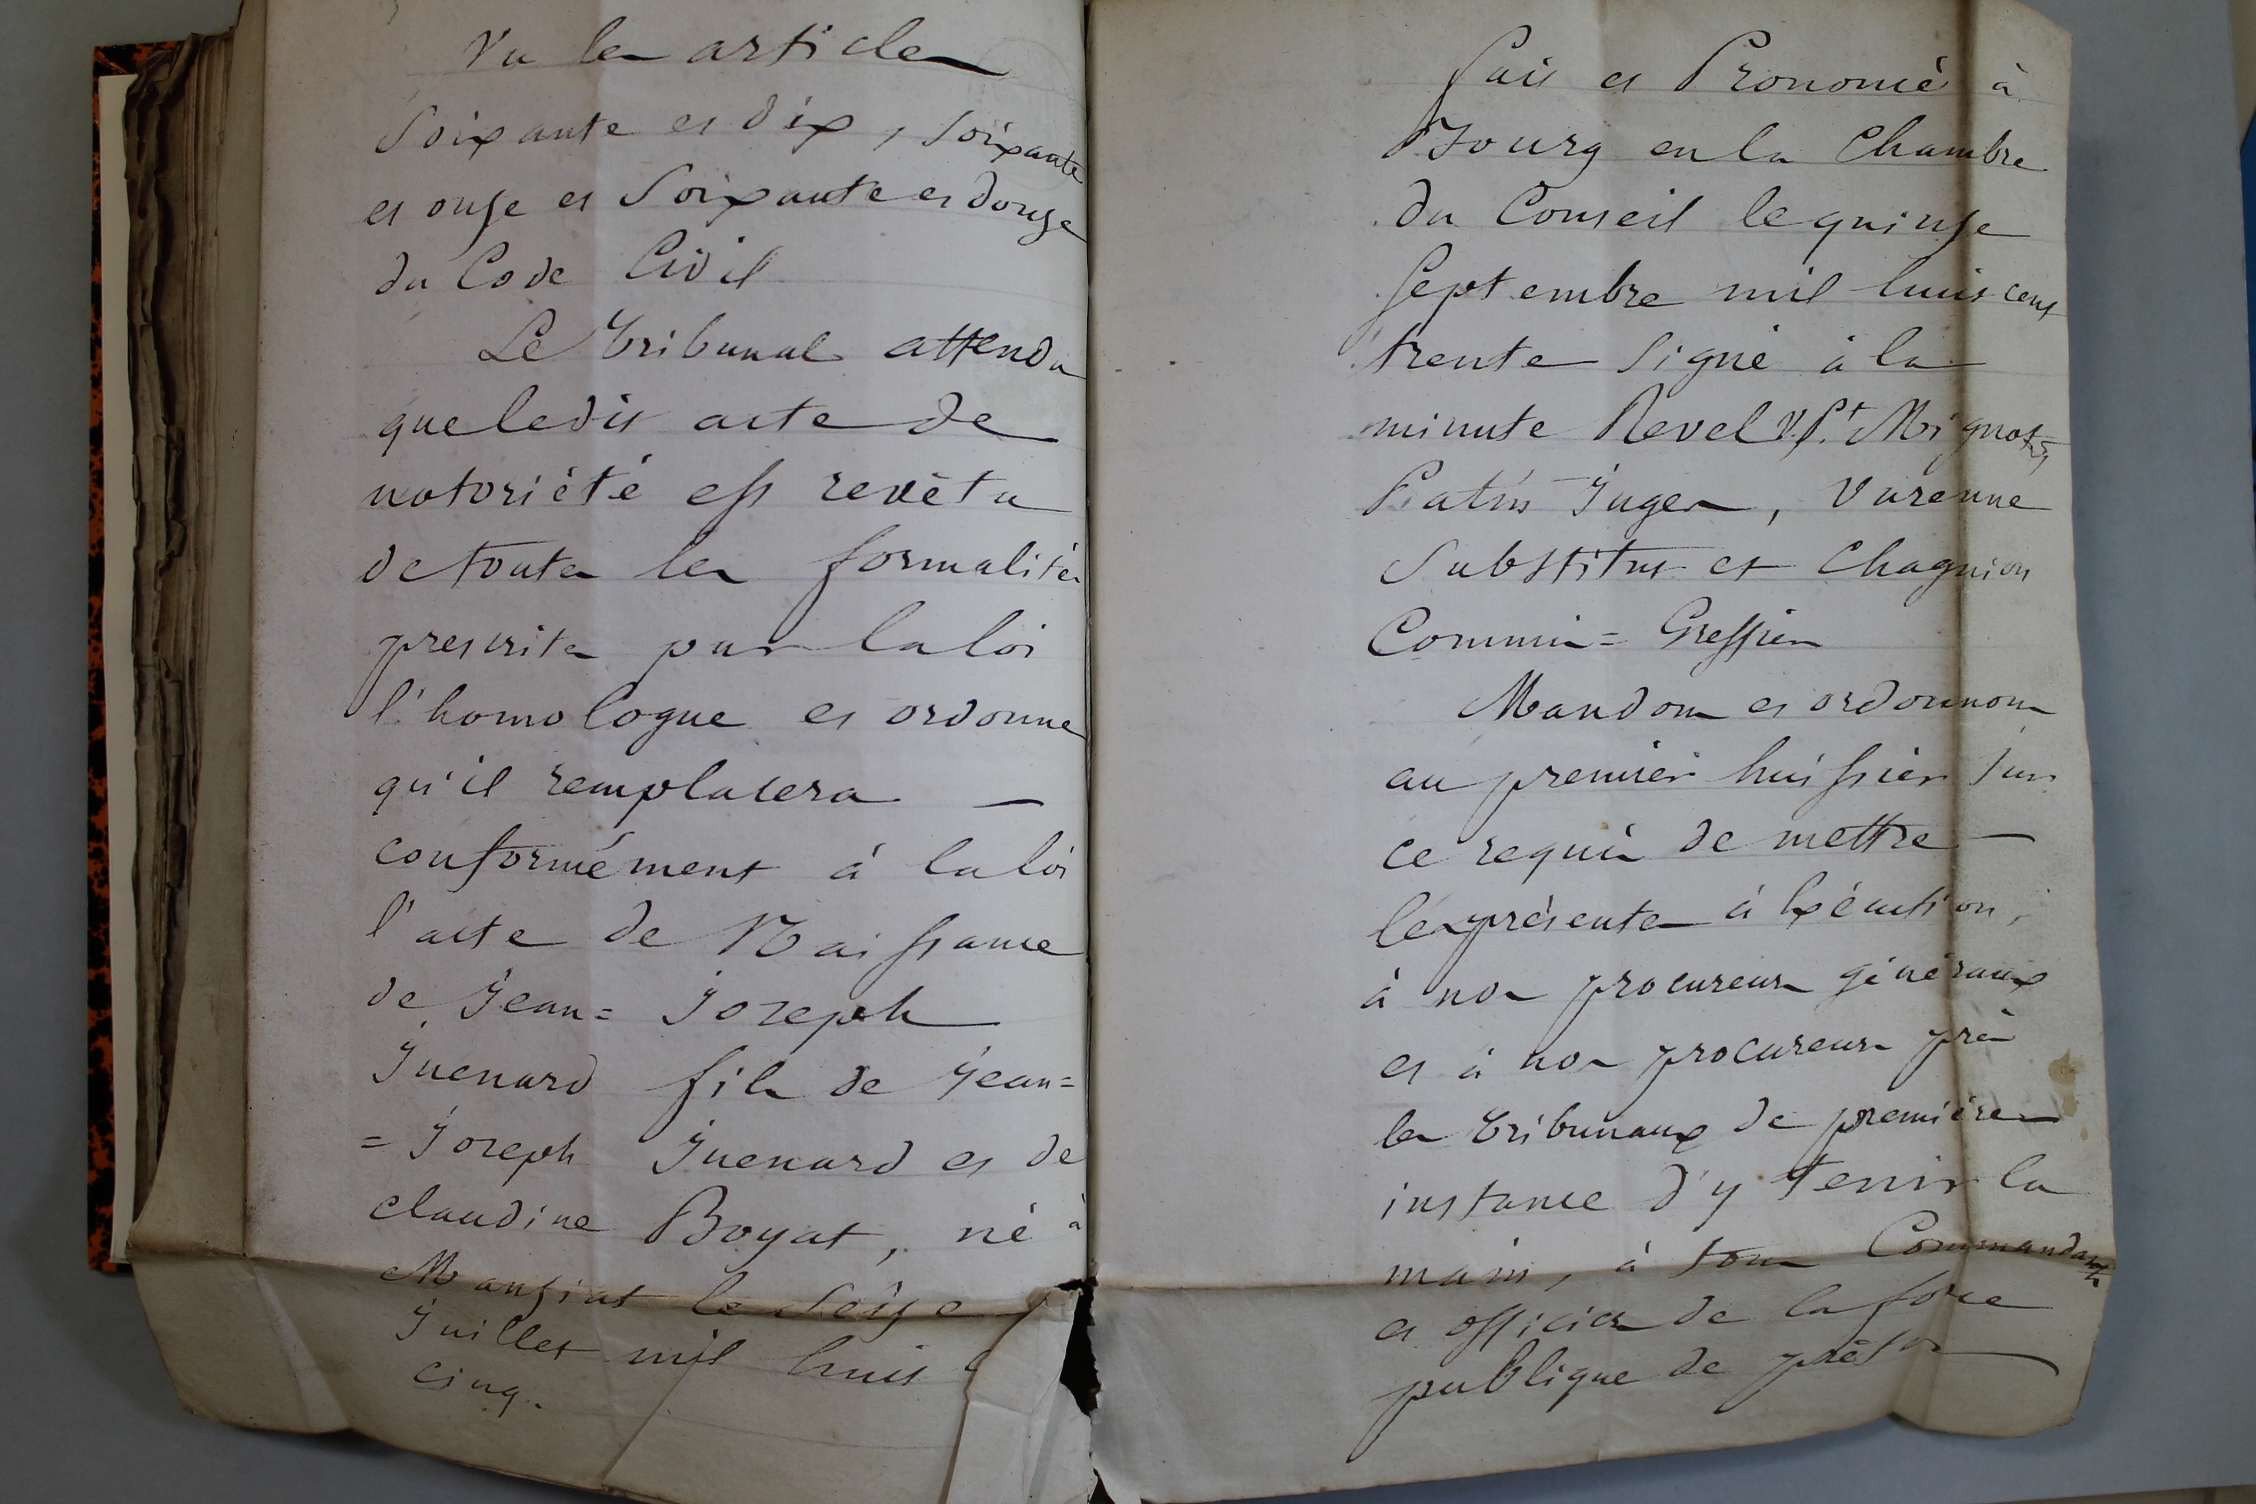 Vu les articles
Soixante et dix, soixante
et onze et Soixante et douze
du Code Civil
Le Tribunal attendu
que ledit acte de
notoriété est revêtu
de toutes les formalités
prescrites par la loi
l'homologue et ordonne
qu'il remplacera —
conformément à la loi
l'acte de Naissance
de Jean = Joseph
Juenard fils de Jean =
= Joseph Juenard et de
claudine Boyat, né à
Manziat le Seize
Juillet mil huit
cinq.
fait et Prononcé à
Bourg en la Chambre
du Conseil le quinze
Septembre mil huit cent
trente Signé à la
minute Revel V. Pt Mignot,
Patin Juges, Varenne
Substitut et Chagnion
Commis = Greffier
Mandons et ordonnons
au premier huissier sur
ce requis de mettre —
les présentes à Exécution,
à nos procureurs généraux
et à nos procureurs près
les Tribunaux de première
instance d'y tenir la
main, à tous Commandants
et officiers de la force
publique de prêter